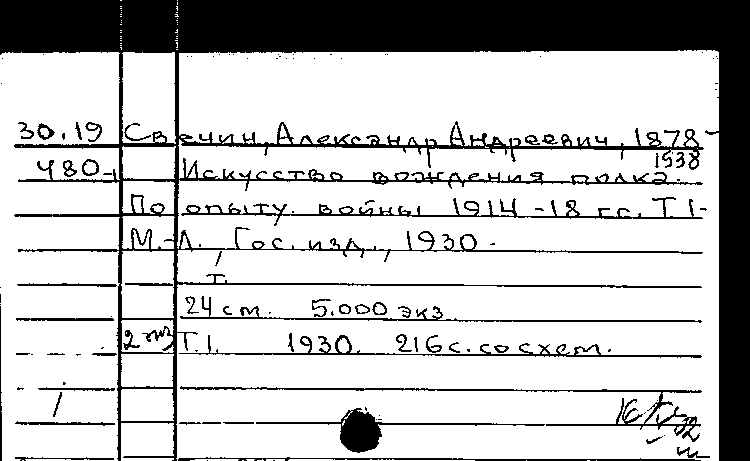 30.19 Свечин, Александр Андреевич, 1878-
1938
480-1 Искусство вождения полка.
По опыту войны 1914-18 гг. Т.1-
М.-Л., Гос. изд., 1930-
т.
24 cm. 5.000 экз.
2 экз Т.1. 1930. 216 с. со схем.
/
16/V-32